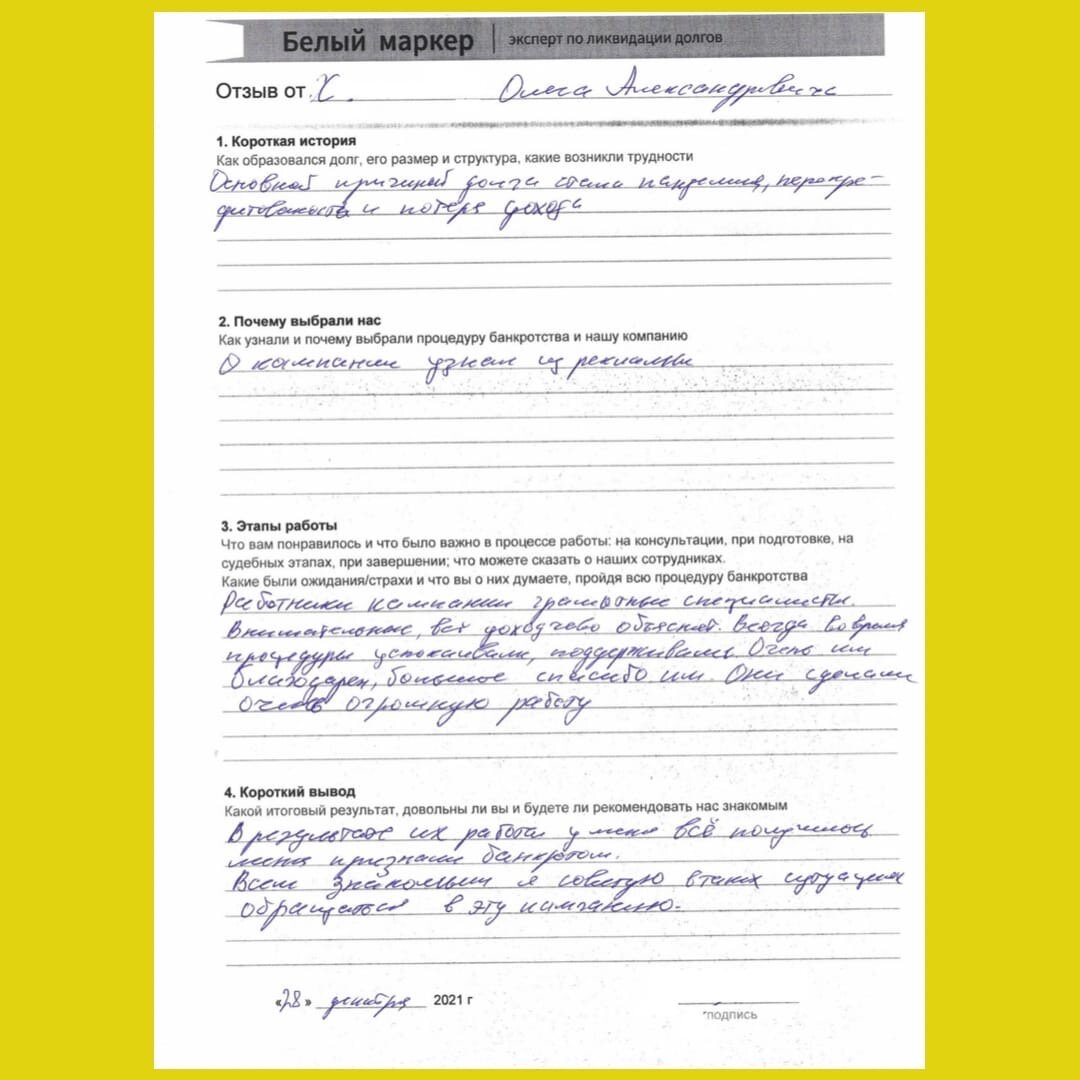 Белый маркер | эксперт по ликвидации долгов
Отзыв от Х. Олега Александровича
1. Короткая история
Как образовался долг, его размер и структура, какие возникли трудности
Основной причиной долга стала пандемия, перекре-
дитованность и потеря дохода
2. Почему выбрали нас
Как узнали и почему выбрали процедуру банкротства и нашу компанию
О кампании узнал из рекламы
3. Этапы работы
Что вам понравилось и что было важно в процессе работы: на консультации, при подготовке, на
судебных этапах, при завершении; что можете сказать о наших сотрудниках.
Какие были ожидания/страхи и что вы о них думаете, пройдя всю процедуру банкротства
Работники кампании грамотные специалисты.
Внимательные, всё доходчево объяснят. Всегда во время
процедуры успокаивали, поддерживали. Очень им
благодарен, большое спасибо им. Они сделали
очень огромную работу
4. Короткий вывод
Какой итоговый результат, довольны ли вы и будете ли рекомендовать нас знакомым
В результате их работы у меня всё получилось
меня признали банкротом.
Всем знакомым я советую в таких ситуациях
обращаться в эту кампанию.
«28» декабря 2021 г
подпись